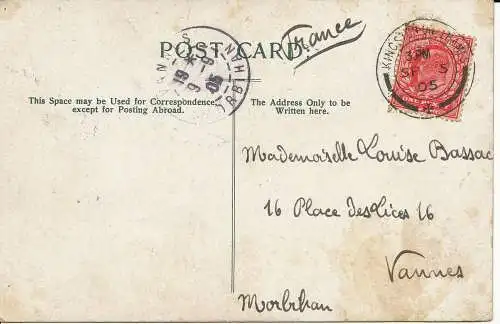 France
POST CARD.
This Space may be Used for Correspondence, except for Posting Abroad.
The Address Only to be Written here.
3 PM
SP 5
05
9 - 9
05
MORBIHAN
Mademoiselle Louise Bassac
16 Place des Lices 16
Vannes
Morbihan